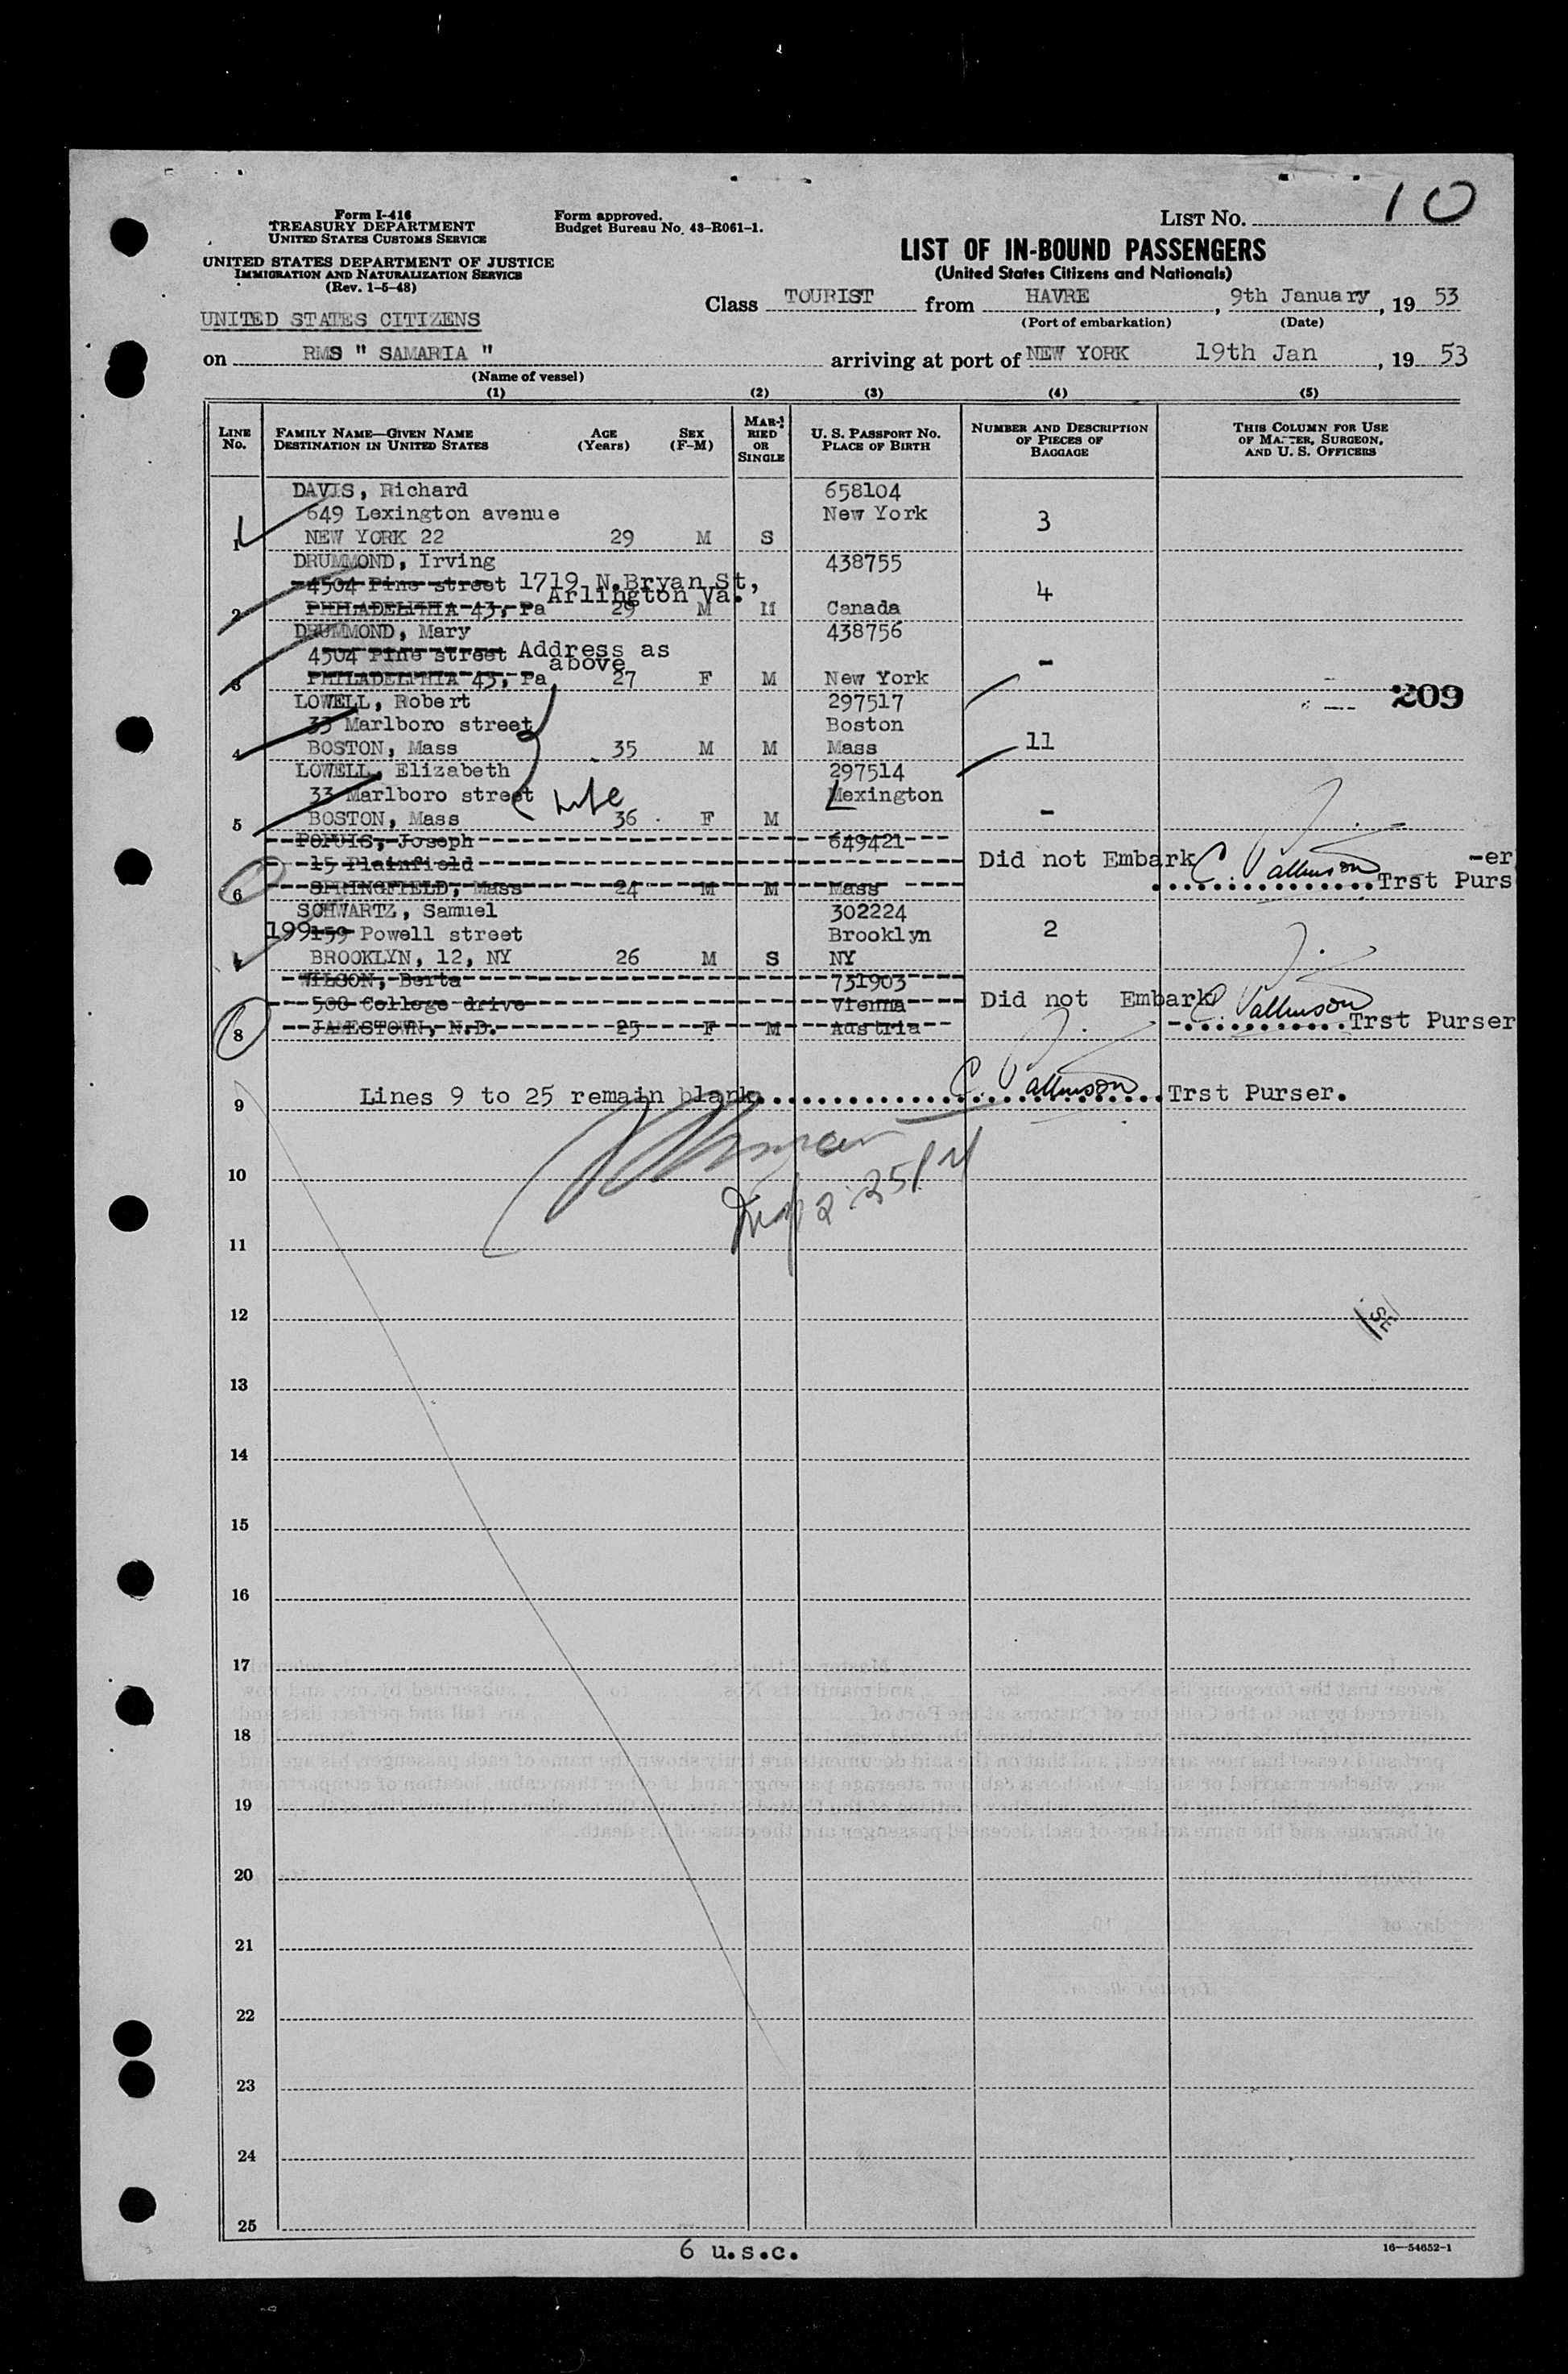 10
LIST NO.
Form I-416
TREASURY DEPARTMENT
UNITED STATES CUSTOMS SERVICE
Form approved.
Budget Bureau No. 43-R061-1.
UNITED STATES DEPARTMENT OF JUSTICE
IMMIGRATION AND NATURALIZATION SERVICE
(Rev. 1-5-48)
LIST OF IN-BOUND PASSENGERS
(United States Citizens and Nationals)
UNITED STATES CITIZENS
Class TOURIST from HAVRE, 9th January, 19 53
(Port of embarkation) (Date)
on RMS " SAMARIA " arriving at port of NEW YORK 19th Jan, 19 53
(Name of vessel)
(1) (2) (3) (4) (5)
LINE No.
FAMILY NAME—GIVEN NAME
DESTINATION IN UNITED STATES
AGE (Years)
SEX (F-M)
MARRIED OR SINGLE
U. S. PASSPORT NO.
PLACE OF BIRTH
NUMBER AND DESCRIPTION OF PIECES OF BAGGAGE
THIS COLUMN FOR USE OF MASTER, SURGEON, AND U. S. OFFICERS
DAVIS, Richard 658104
649 Lexington avenue New York 3
1 NEW YORK 22 29 M S
DRUMMOND, Irving 438755
4504 Pine street 1719 N.Bryan St,
Arlington Va. 4
2 PHILADELPHIA 43, Pa 29 M M Canada
DRUMMOND, Mary 438756
4504 Pine street Address as
above -
3 PHILADELPHIA 43, Pa 27 F M New York
LOWELL, Robert 297517 209
33 Marlboro street Boston
4 BOSTON, Mass 35 M M Mass 11
LOWELL, Elizabeth 297514
33 Marlboro street wife Lexington
5 BOSTON, Mass 36 F M -
Joseph 649421
15 Plainfield Did not Embark -er
6 SPRINGFIELD, Mass 24 M M Mass Trst Purs
SCHWARTZ, Samuel 302224
199 159 Powell street Brooklyn 2
7 BROOKLYN, 12, NY 26 M S NY
WILSON, Berta 731903
500 College drive Vienna Did not Embark
8 JAMESTOWN, N.D. 25 F M Austria Trst Purser
9 Lines 9 to 25 remain blank Trst Purser.
10
11
12
13
14
15
16
17
18
19
20
21
22
23
24
25
6 u.s.c.
16—54652-1